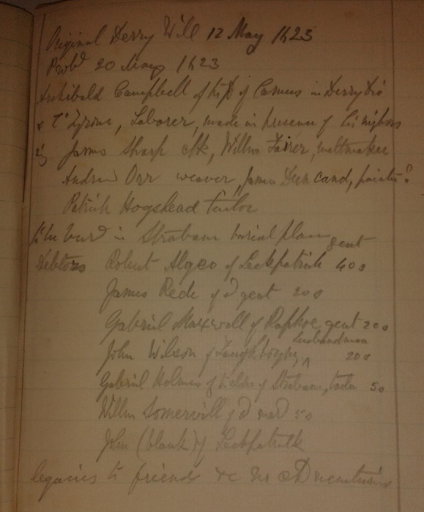 Original Derry Will 12 May 1623
Prob^d 20 May 1623
Archibald Campbell of ye p of Camus in Derry Dio
& C° Tyrone, Laborer, made in presence of his nighors
James Sharp clk, William Fairer, maltmaker
Andrew Orr weaver James Duncand,
Patrick Hogshead Tailor
to be bur^d in Strabane burial place
Debtors Robert Algeo of Leckpatrick gent 40s
James Rede of d° gent 20s
Gabriel Maxwell of Raphoe gent 20s
John Wilson of husbandman 20s
Gabriel Holmes of of Strabane, 50
Willm Somervill of d°
John (blank) of Leckpatrick
legacies to friends &c no